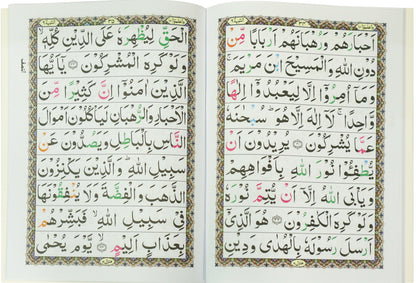 اَحْبَارَهُمْ وَرُهْبَانَهُمْ اَرْبَابًا مِّنْ
دُوْنِ اللّٰهِ وَالْمَسِيْحَ ابْنَ مَرْيَمَ ۚ
وَمَاۤ اُمِرُوْۤا اِلَّا لِيَعْبُدُوْۤا اِلٰهًا
وَّاحِدًا ۚ لَاۤ اِلٰهَ اِلَّا هُوَ ؕ سُبْحٰنَهٗ
عَمَّا يُشْرِكُوْنَ ۝ يُرِيْدُوْنَ اَنْ
يُّطْفِـُٔوْا نُوْرَ اللّٰهِ بِاَفْوَاهِهِمْ
وَيَاْبَى اللّٰهُ اِلَّاۤ اَنْ يُّتِمَّ نُوْرَهٗ
وَلَوْ كَرِهَ الْكٰفِرُوْنَ ۝ هُوَ الَّذِىْۤ
اَرْسَلَ رَسُوْلَهٗ بِالْهُدٰى وَدِيْنِ
الْحَقِّ لِيُظْهِرَهٗ عَلَى الدِّيْنِ كُلِّهٖ ۙ
وَلَوْ كَرِهَ الْمُشْرِكُوْنَ ۝ يٰۤاَيُّهَا
الَّذِيْنَ اٰمَنُوْۤا اِنَّ كَثِيْرًا مِّنَ
الْاَحْبَارِ وَالرُّهْبَانِ لَيَاْكُلُوْنَ اَمْوَالَ
النَّاسِ بِالْبَاطِلِ وَيَصُدُّوْنَ عَنْ
سَبِيْلِ اللّٰهِ ؕ وَالَّذِيْنَ يَكْنِزُوْنَ
الذَّهَبَ وَالْفِضَّةَ وَلَا يُنْفِقُوْنَهَا
فِىْ سَبِيْلِ اللّٰهِ ۙ فَبَشِّرْهُمْ
بِعَذَابٍ اَلِيْمٍ ۝ يَّوْمَ يُحْمٰى